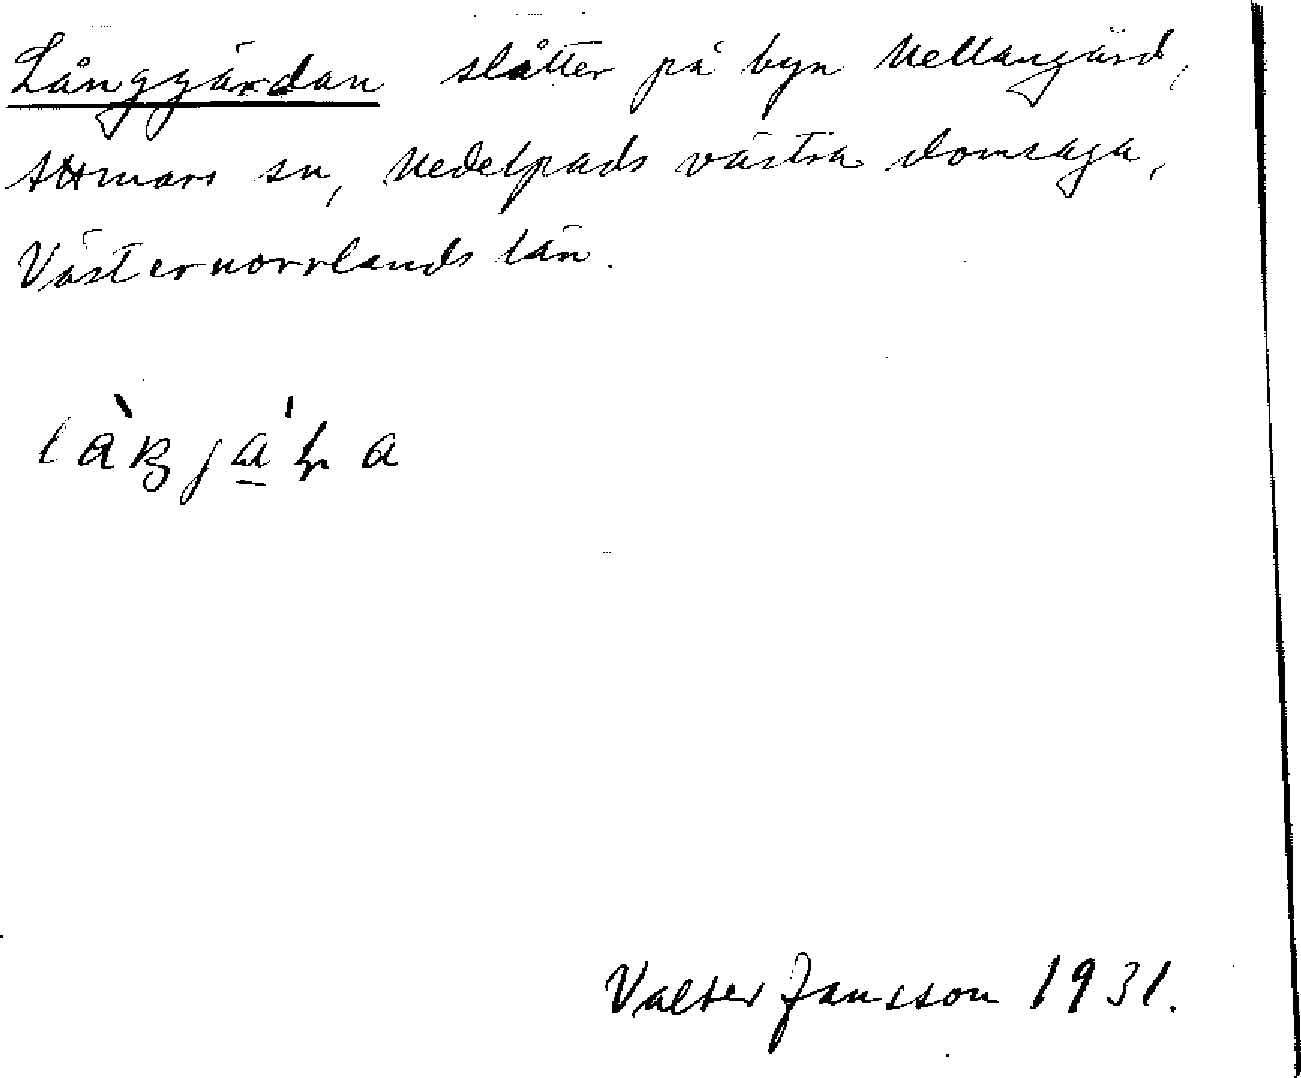 Långgärdan slåtter på byn Mellangärd,
Attmars sn, Medelpads västra domsaga,
Västernorrlands län.
Valter Jansson 1931.